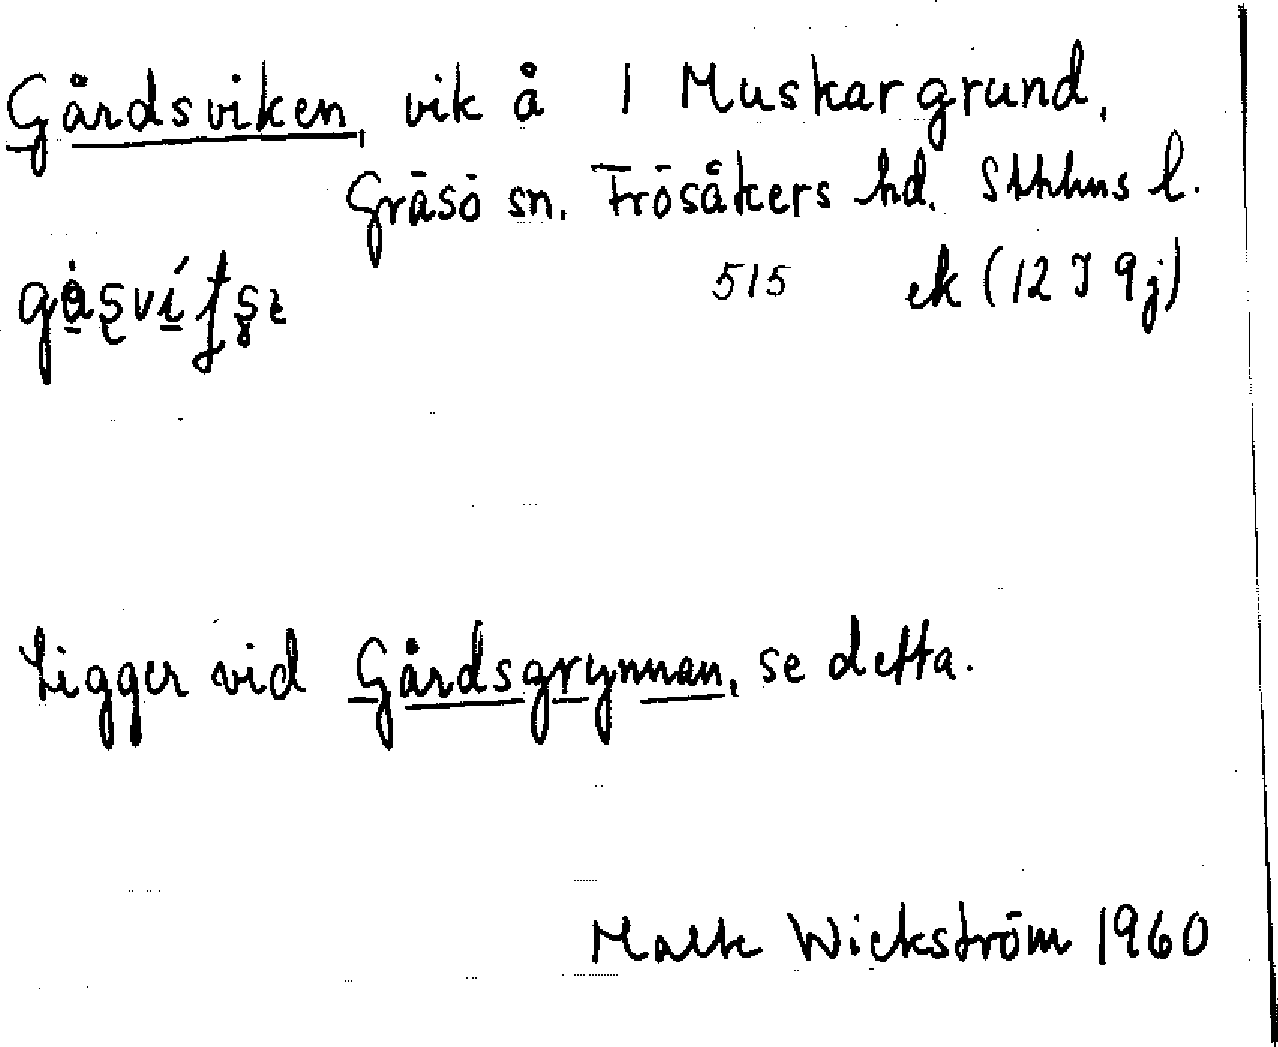 Gårdsviken, vik å 1 Muskargrund,
Gräsö sn. Frösåkers hd. Sthlms l.
515 ek (12 I 9j)
Ligger vid Gårdsgrynnan, se detta.
Malte Wickström 1960